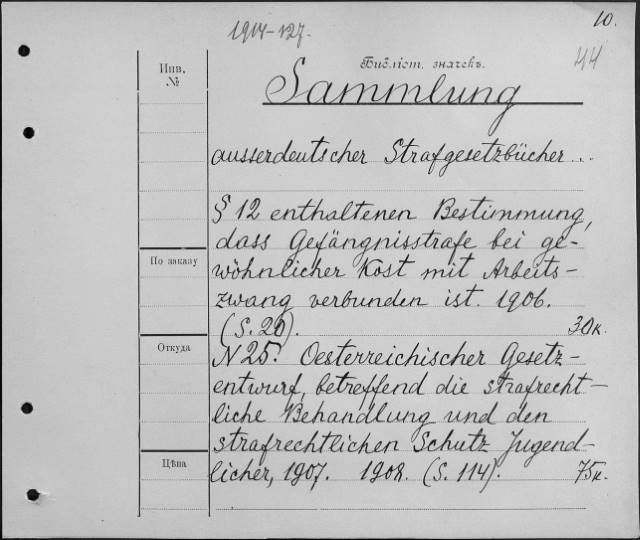 1914-127.
10.
44
Инв. №
Библіот. значекъ.
Sammlung
ausserdeutscher Strafgesetzbücher...
§ 12 enthaltenen Bestimmung,
dass Gefängnisstrafe bei ge-
По заказу
wöhnlicher Kost mit Arbeits-
zwang verbunden ist. 1906.
(S. 20). 30к.
Откуда
N 25. Oesterreichischer Gesetz-
entwurf, betreffend die strafrecht-
liche Behandlung und den
strafrechtlichen Schutz Jugend-
Цѣна
licher, 1907. 1908. (S. 114). 75к.